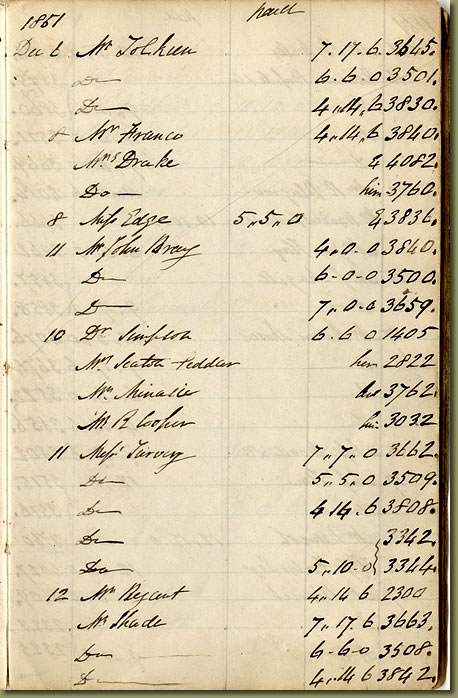 1851
Dec 6 Mr Tolkien 7.17.6 3645.
Do 6-6-0 3501.
Do 4,,14,,6 3830.
8 Mr Franco 4,,14,,6 3840.
Mrs Drake 4082.
Do 3760.
8 Miss Edge 5,,5,,0 3836.
11 Mr John Bray 4,,0-0 3840.
Do 6-0-0 3500.
Do 7,,0-0 3659.
10 Dr Simpson 6-6 0 1405
Mrs Seaton 2822
Mr 3762.
Mr R Cooper 3032
11 Messrs 7,,7,,0 3662.
Do 5,,5,0 3509.
Do 4 14.6 3808.
Do 3342.
Do 5,,10-0 3344.
12 Mr 4,,14 6 2300
Mr Shade 7,,17 6 3663.
Do 6-6-0 3508.
Do 4,,14 6 3842.